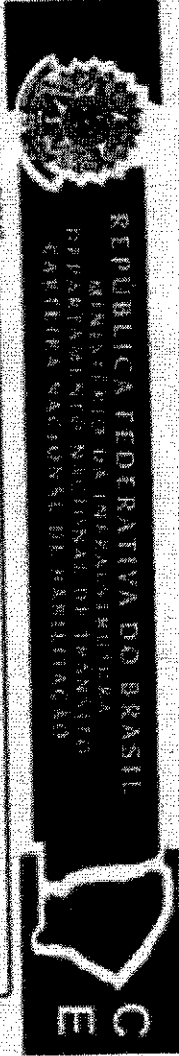 REPÚBLICA FEDERATIVA DO BRASIL
MINISTÉRIO DA INFRAESTRUTURA
DEPARTAMENTO NACIONAL DE TRÂNSITO
CARTEIRA NACIONAL DE HABILITAÇÃO
CE